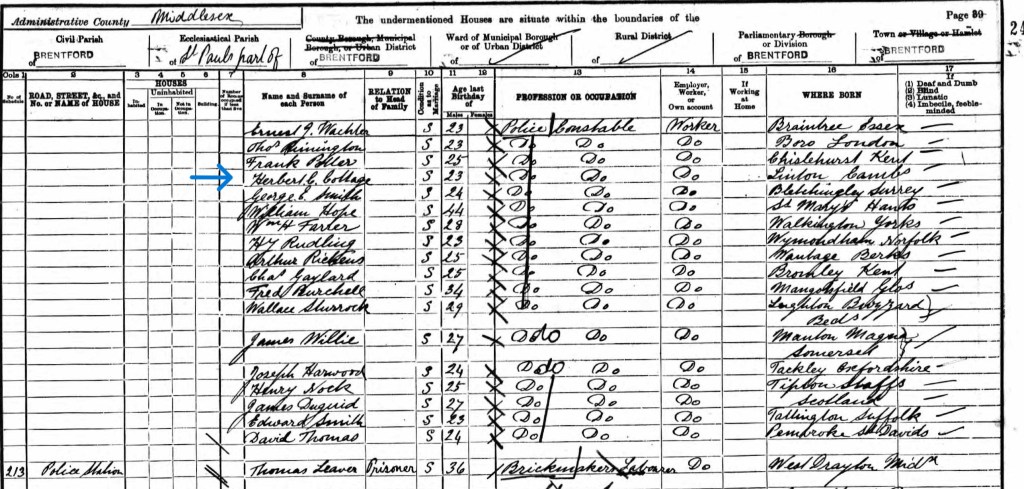 Administrative County Middlesex The undermentioned Houses are situate within the boundaries of the Page 39
24
Civil Parish Ecclesiastical Parish County Borough, Municipal Borough, or Urban District Ward of Municipal Borough or of Urban District Rural District Parliamentary Borough or Division Town or Village or Hamlet
of BRENTFORD of St Pauls part of of BRENTFORD of of of BRENTFORD of BRENTFORD
Cols 1 2 3 4 5 6 7 8 9 10 11 12 13 14 15 16 17
No. of Schedule ROAD, STREET, &c., and No. or NAME of HOUSE HOUSES Inhabited Uninhabited In Occupation. Not in Occupation. Building Name and Surname of each Person RELATION to Head of Family Condition as to Marriage Age last Birthday of Males Females PROFESSION OR OCCUPATION Employer, Worker, or Own account If Working at Home WHERE BORN If (1) Deaf and Dumb (2) Blind (3) Lunatic (4) Imbecile, feeble-minded
Ernest J. Wachter S 23 Police Constable Worker Braintree Essex
Thos Rimington S 23 Do Do Do Boro London
Frank S 25 Do Do Do Chislehurst Kent
Herbert G. Cottage S 23 Do Do Do Linton Cambs
George E. Smith S 24 Do Do Do Bletchingley Surrey
William Hope S 44 Do Do Do St Marys Hants
Wm H Farler S 28 Do Do Do Walkington Yorks
Hy Rudling S 23 Do Do Do Wymondham Norfolk
Arthur Rickens S 25 Do Do Do Wantage Berks
Chas Gaylard S 25 Do Do Do Bromley Kent
Fred Burchell S 34 Do Do Do Mangotsfield Glos
Wallace Sturrock S 29 Do Do Do Leighton Buzzard
Beds
James Willie S 27 Do do Do Do Manton Magna
Somerset
Joseph Harwood S 24 Do do Do Do Tackley Oxfordshire
Henry Nock S 25 Do Do Do Tipton Staffs
James Duguid S 27 Do Do Do Scotland
Edward Smith S 23 Do Do Do Tallington Suffolk
David Thomas S 24 Do Do Do Pembroke St Davids
213 Police Station Thomas Leaver Prisoner S 36 Brickmakers Labourer Do West Drayton Midx